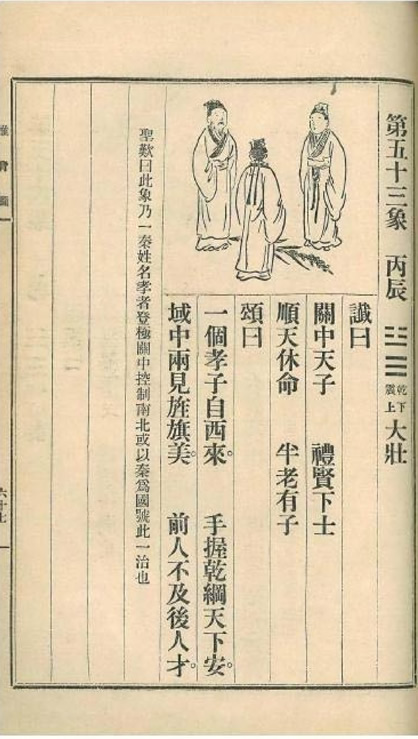 第五十三象 丙辰 ䷡ 乾下 震上 大壯
讖曰
關中天子 禮賢下士
順天休命 半老有子
頌曰
一個孝子自西來。 手握乾綱天下安。
域中兩見旌旗美。 前人不及後人才。
聖歎曰此象乃一秦姓名孝者登極關中控制南北或以秦爲國號此一治也
推背圖
六十七